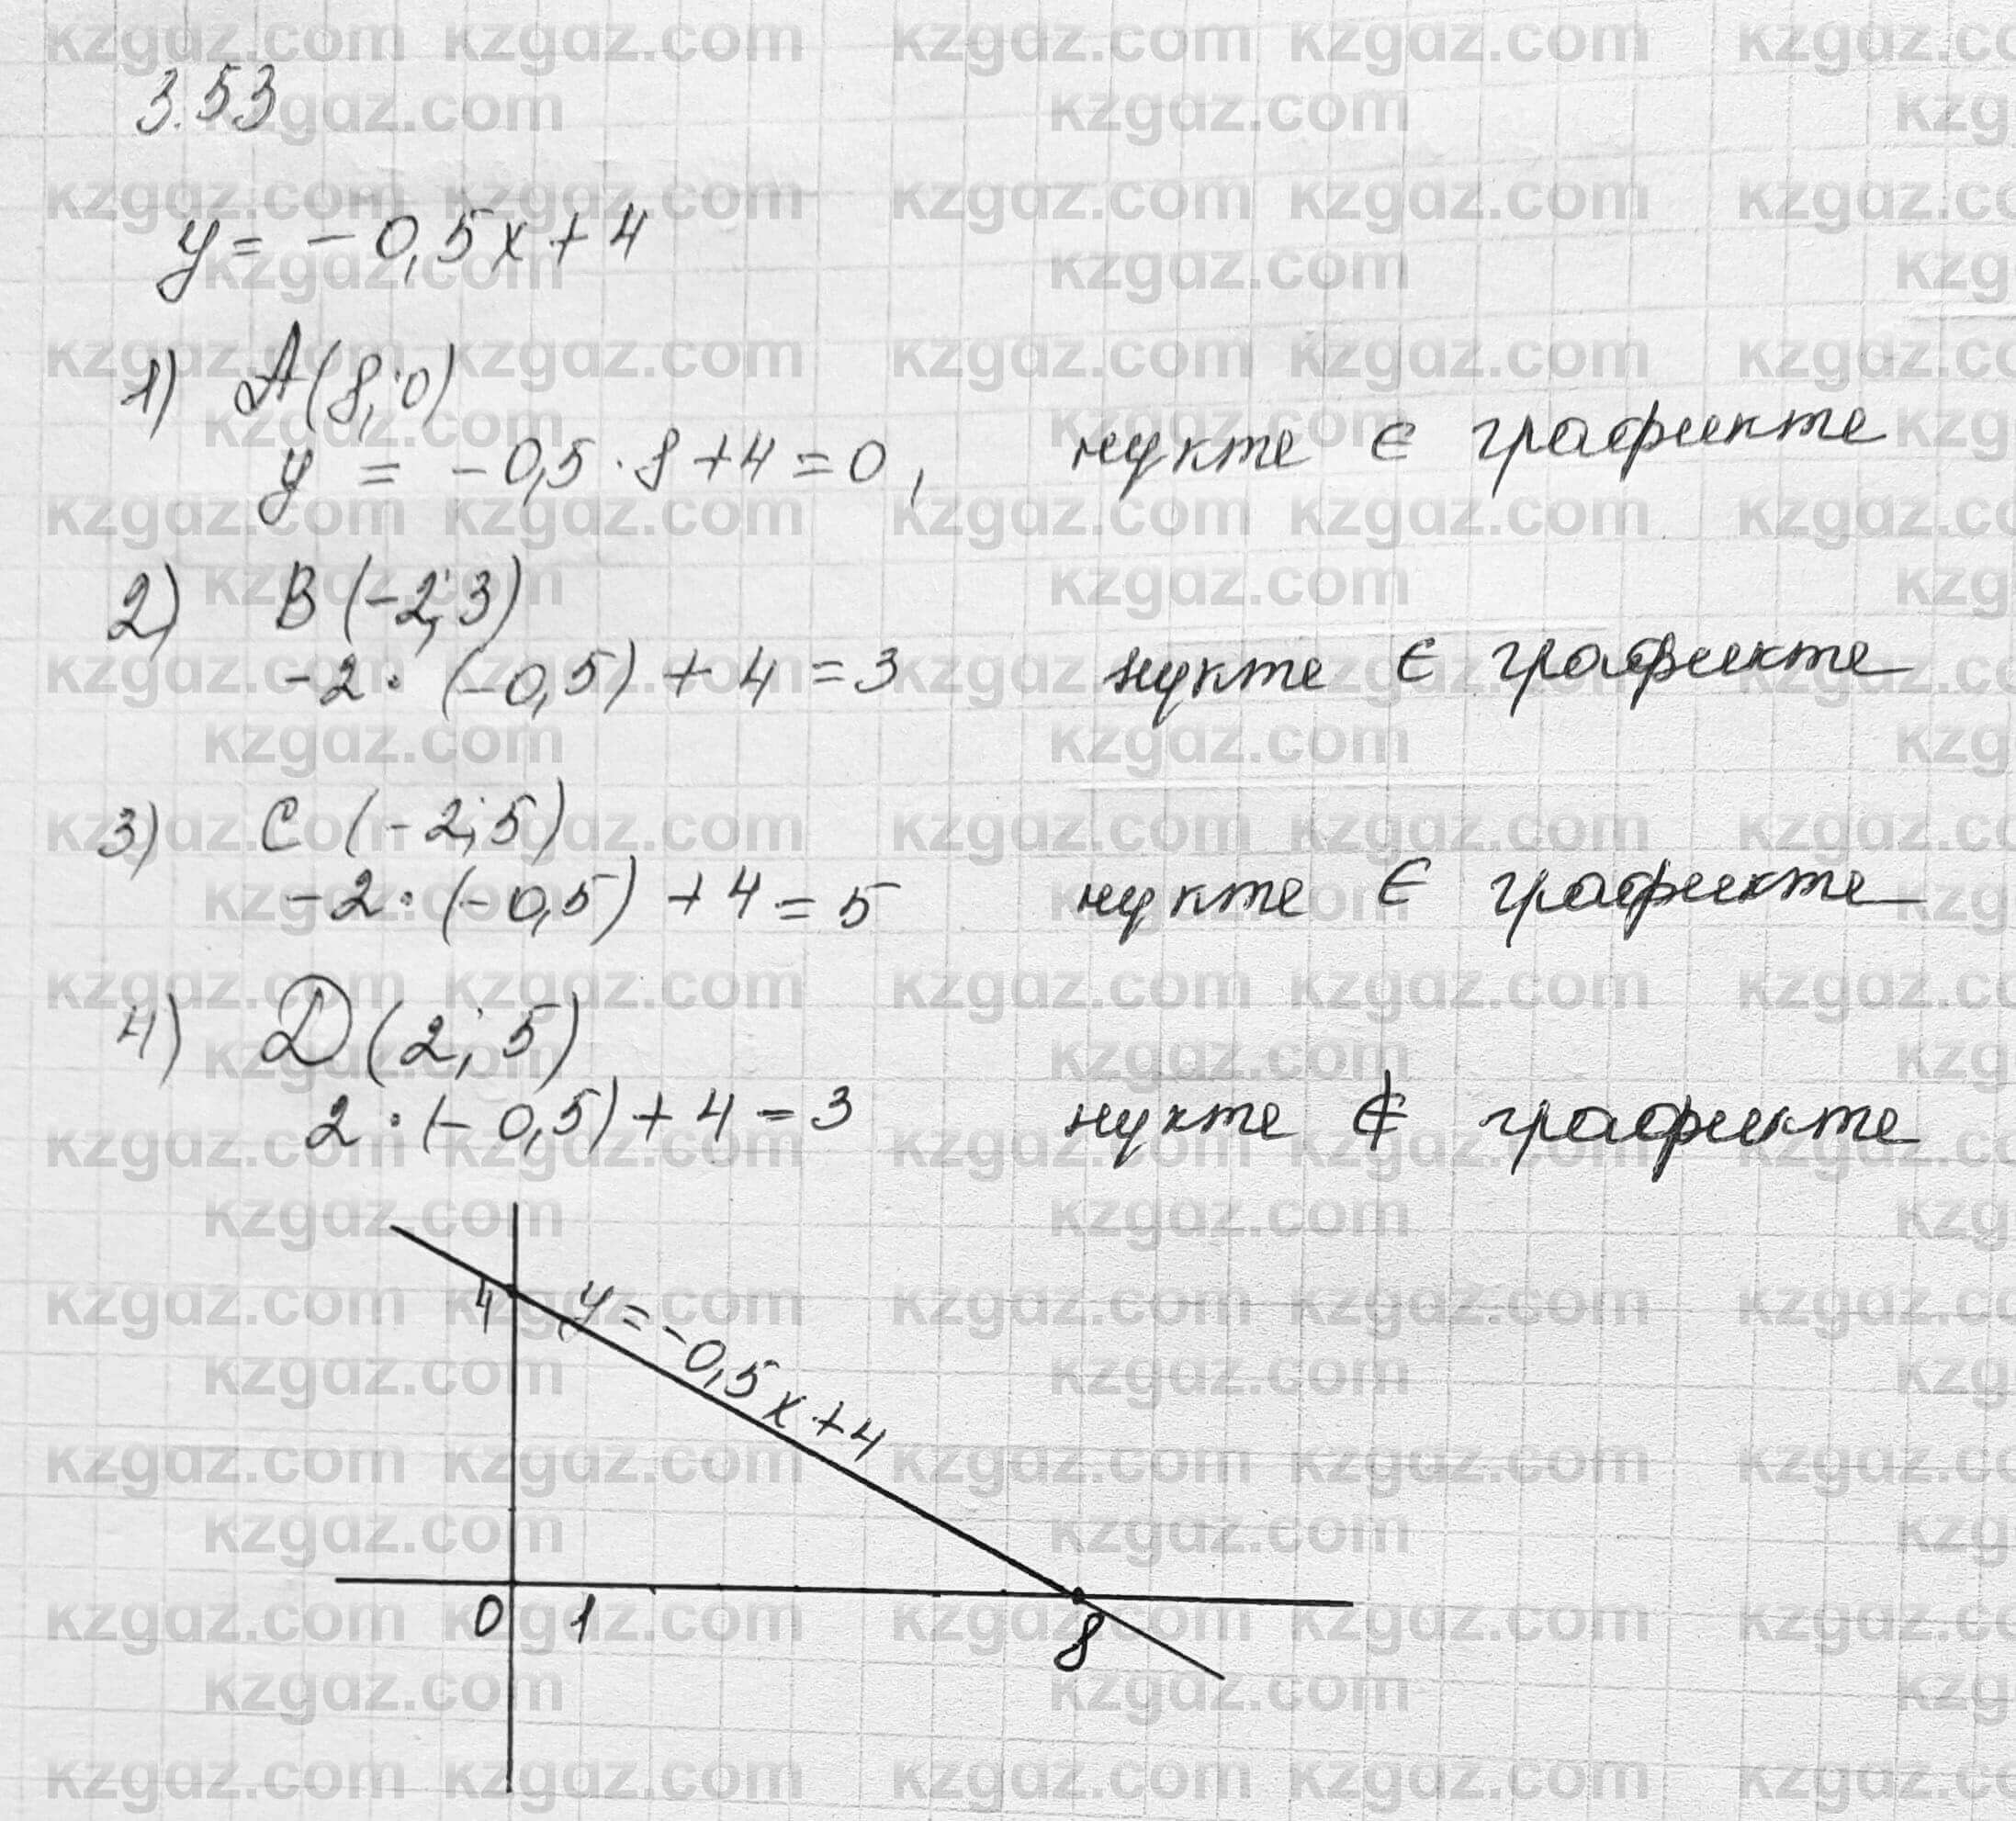 3.53
y = -0,5x + 4
1) A(8; 0)
y = -0,5 · 8 + 4 = 0, нүкте ∈ графикте
2) B(-2; 3)
-2 · (-0,5) + 4 = 3 нүкте ∈ графикте
3) C(-2; 5)
-2 · (-0,5) + 4 = 5 нүкте ∈ графикте
4) D(2; 5)
2 · (-0,5) + 4 = 3 нүкте ∉ графикте
4 y = -0,5x + 4
0 1 8
kzgaz.com